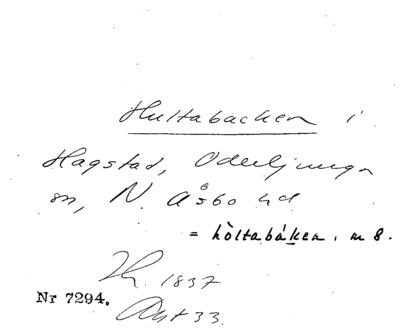 Hultabacken i
Hagstad, Oderljunga
sn, N. Åsbo hd
= hòltabáken. m 8.
1837
Nr 7294. 33.